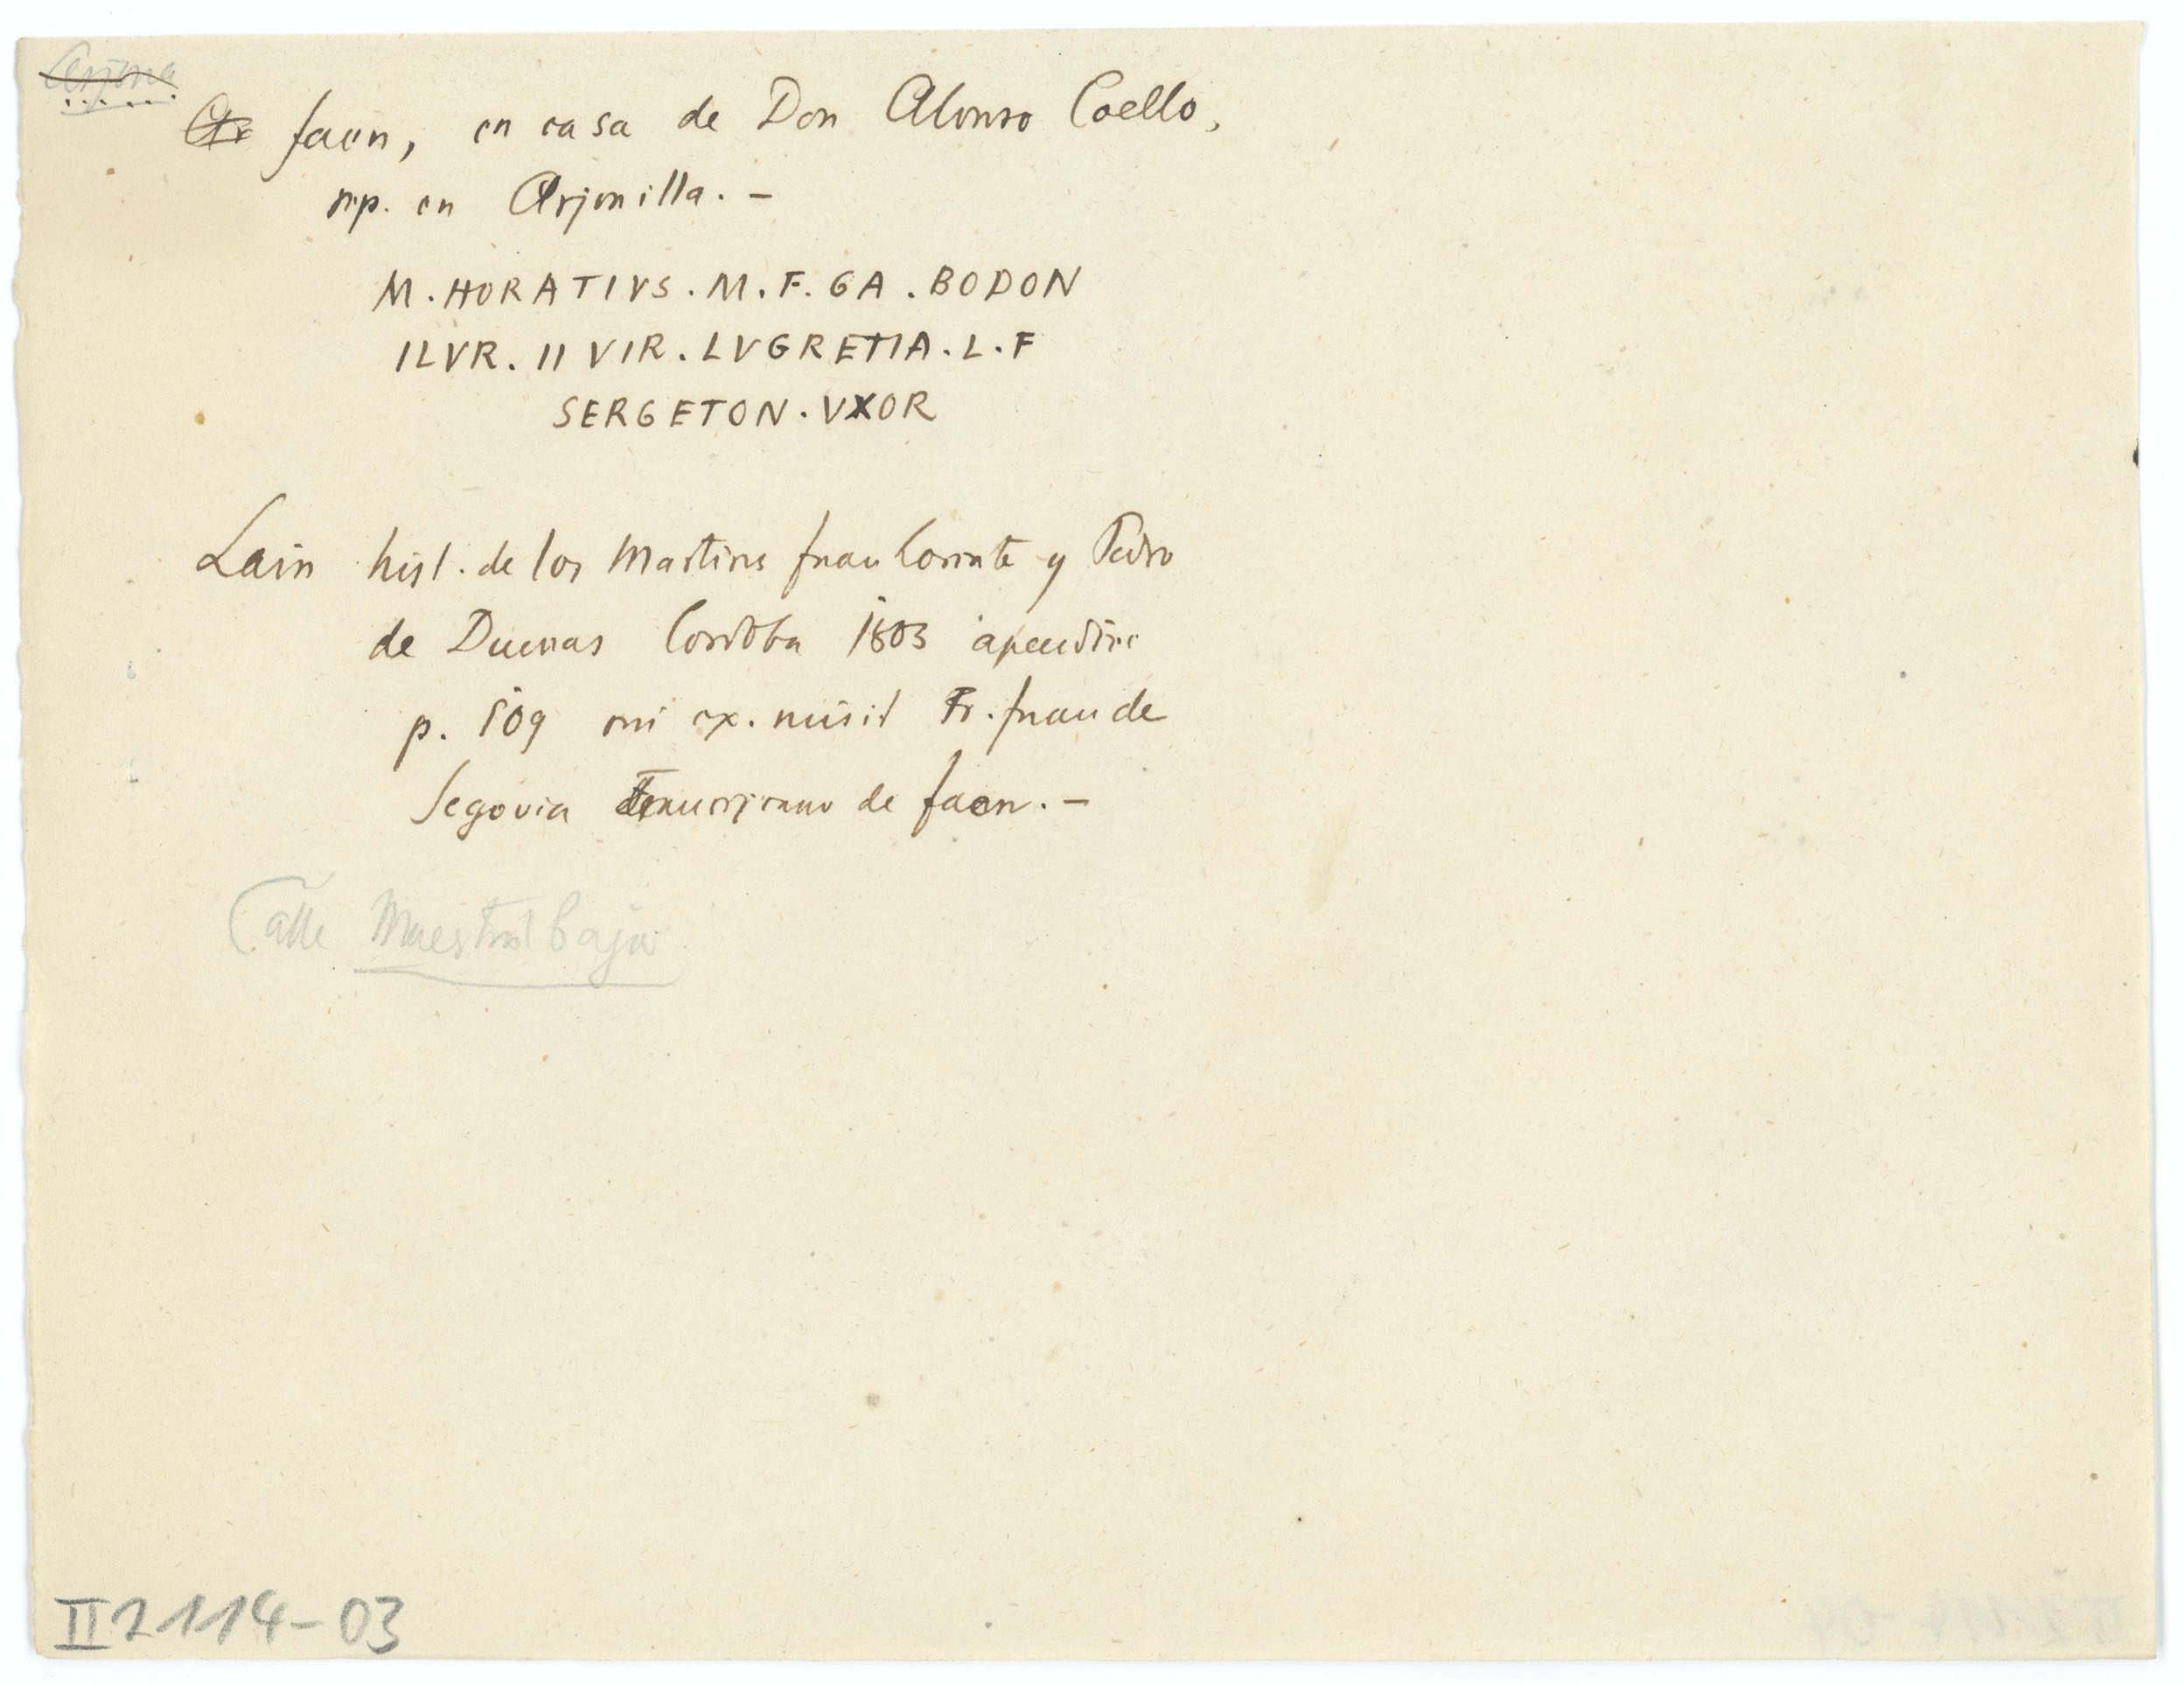 Arjona
Ar Jaen, en casa de Don Alonso Coello,
rep. en Arjonilla. –
M . HORATIVS . M . F . GA . BODON
ILVR . II VIR . LVGRETIA . L . F
SERGETON . VXOR
Lain hist. de los Martires Juan Lorente y Pedro
de Duenas Cordoba 1803 apendice
p. 509 mi ex. misit Fr. Juan de
Segovia de Jaen. –
Calle Maestra baja
II 2114-03